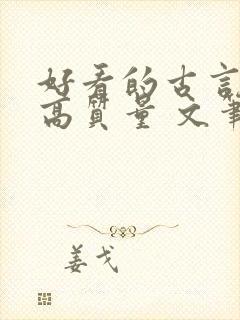 好看的古言
高质量 文笔
姜戈